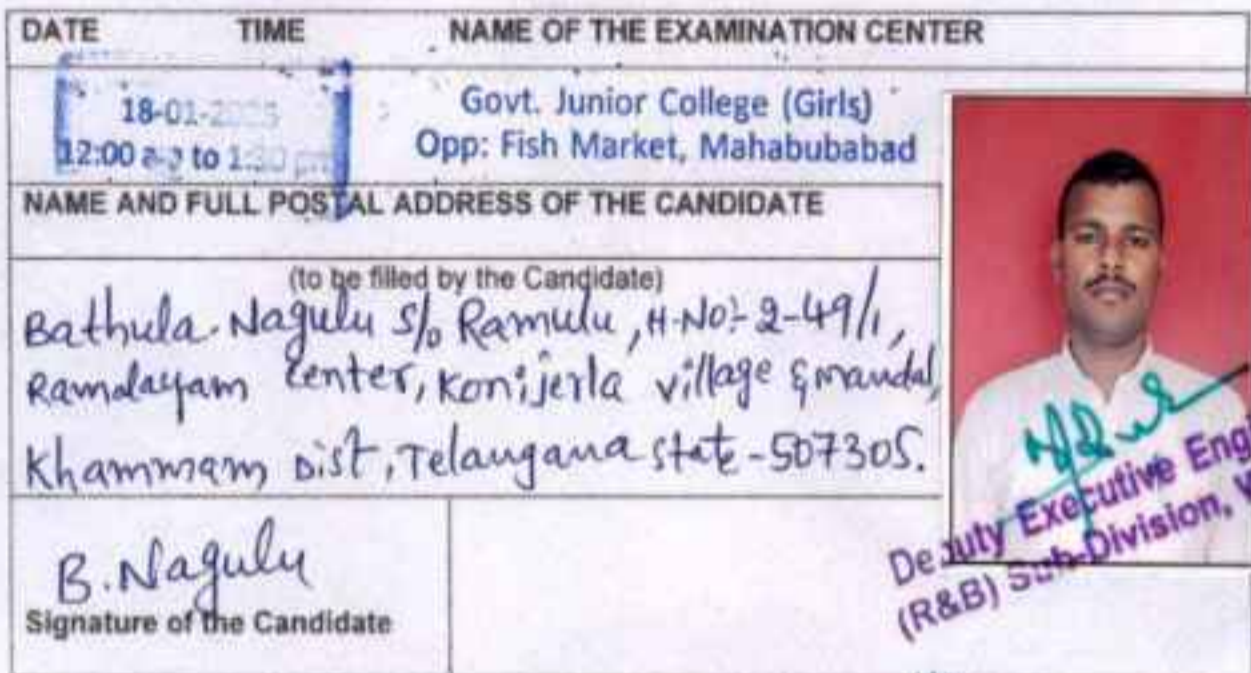 DATE TIME NAME OF THE EXAMINATION CENTER
18-01-
12:00 to 1:30
Govt. Junior College (Girls)
Opp: Fish Market, Mahabubabad
NAME AND FULL POSTAL ADDRESS OF THE CANDIDATE
(to be filled by the Candidate)
Bathula Nagulu S/o Ramulu, H-NO:- 2-49/1,
Ramalayam Center, Konijerla village & mandal,
Khammam Dist, Telangana state - 507305.
B. Nagulu
Signature of the Candidate
Deputy Executive Engi
(R&B) Sub-Division, W